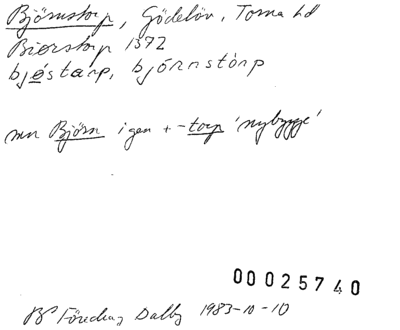 Björnstorp, Gödelöv, Torna hd
Biorstorp 1372
bjǫ́starp, bjórnstórp
mn Björn i gen + -torp 'nybygge'
00025740
BP Föredrag Dalby 1983-10-10